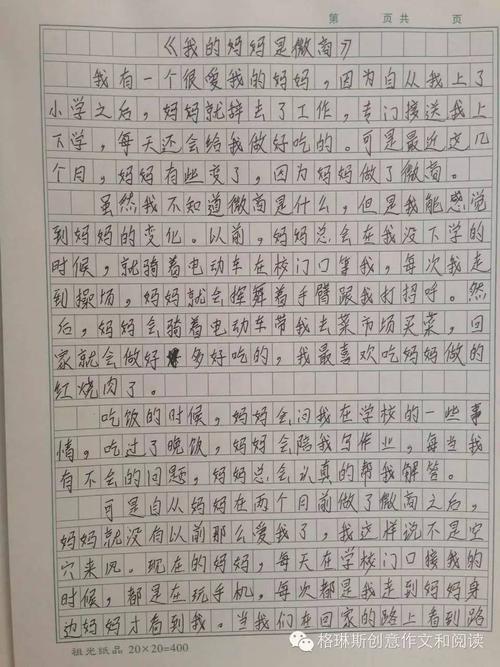 第 页共 页
《我的妈妈是微商》
我有一个很爱我的妈妈，因为自从我上了
小学之后，妈妈就辞去了工作，专门接送我上
下学，每天还会给我做好吃的。可是最近这几
个月，妈妈有些变了，因为妈妈做了微商。
虽然我不知道微商是什么，但是我能感觉
到妈妈的变化。以前，妈妈总会在我没下学的
时候，就骑着电动车在校门口等我，每次我走
到操场，妈妈就会挥舞着手臂跟我打招呼。然
后，妈妈会骑着电动车带我去菜市场买菜，回
家就会做好多好吃的，我最喜欢吃妈妈做的
红烧肉了。
吃饭的时候，妈妈会问我在学校的一些事
情，吃过了晚饭，妈妈会陪我写作业，每当我
有不会的问题，妈妈总会认真的帮我解答。
可是自从妈妈在两个月前做了微商之后，
妈妈就没有以前那么爱我了，我这样说不是空
穴来风。现在的妈妈，每天在学校门口接我的
时候，都是在玩手机，每次都是我走到妈妈身
边妈妈才看到我。当我们在回家的路上看到路
祖光纸品 20×20=400
格琳斯创意作文和阅读